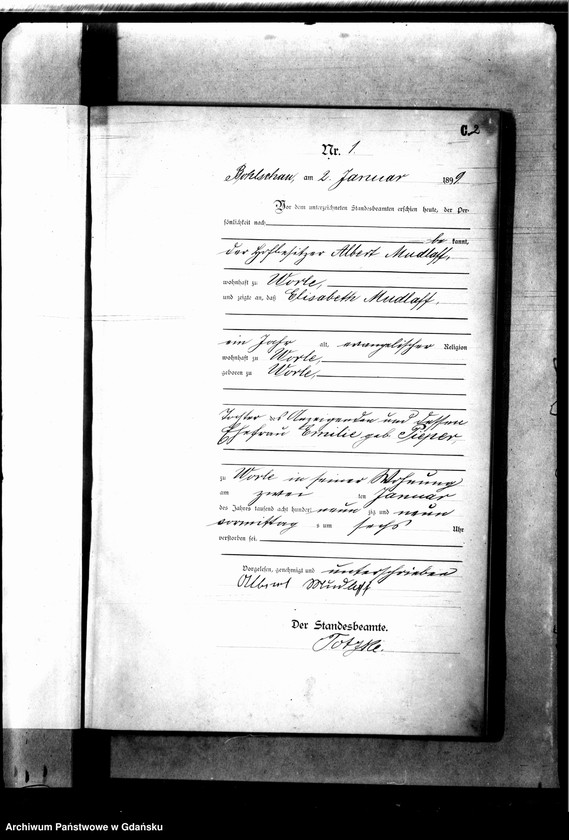 C. 2
Nr. 1.
Bohlschau, am 2. Januar 1899
Vor dem unterzeichneten Standesbeamten erschien heute, der Per-
sönlichkeit nach
be kannt,
der Hofbesitzer Albert Mudlaff,
wohnhaft zu Worle,
und zeigte an, daß Elisabeth Mudlaff,
ein Jahr alt, evangelischer Religion
wohnhaft zu Worle,
geboren zu Worle,
Tochter des Anzeigenden und dessen
Ehefrau Emilie geb. Pieper,
zu Worle in seiner Wohnung
am zwei ten Januar
des Jahres tausend acht hundert neun zig und neun
vormittag s um sechs Uhr
verstorben sei.
Vorgelesen, genehmigt und unterschrieben
Albert Mudlaff
Der Standesbeamte.
Totzke.
Archiwum Państwowe w Gdańsku